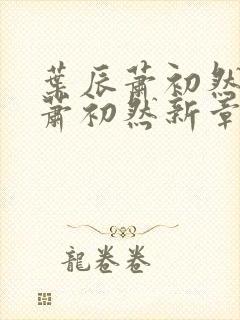 葉辰蕭初然
蕭初然新章
龍卷卷